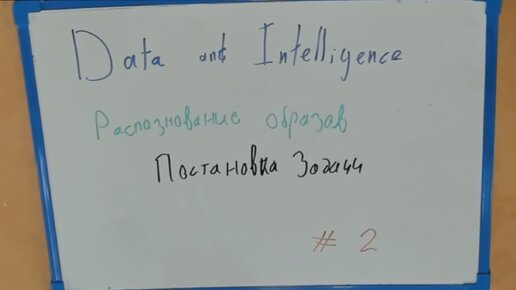 Data and Intelligence
Распознование образав
Постановка Задачи
# 2